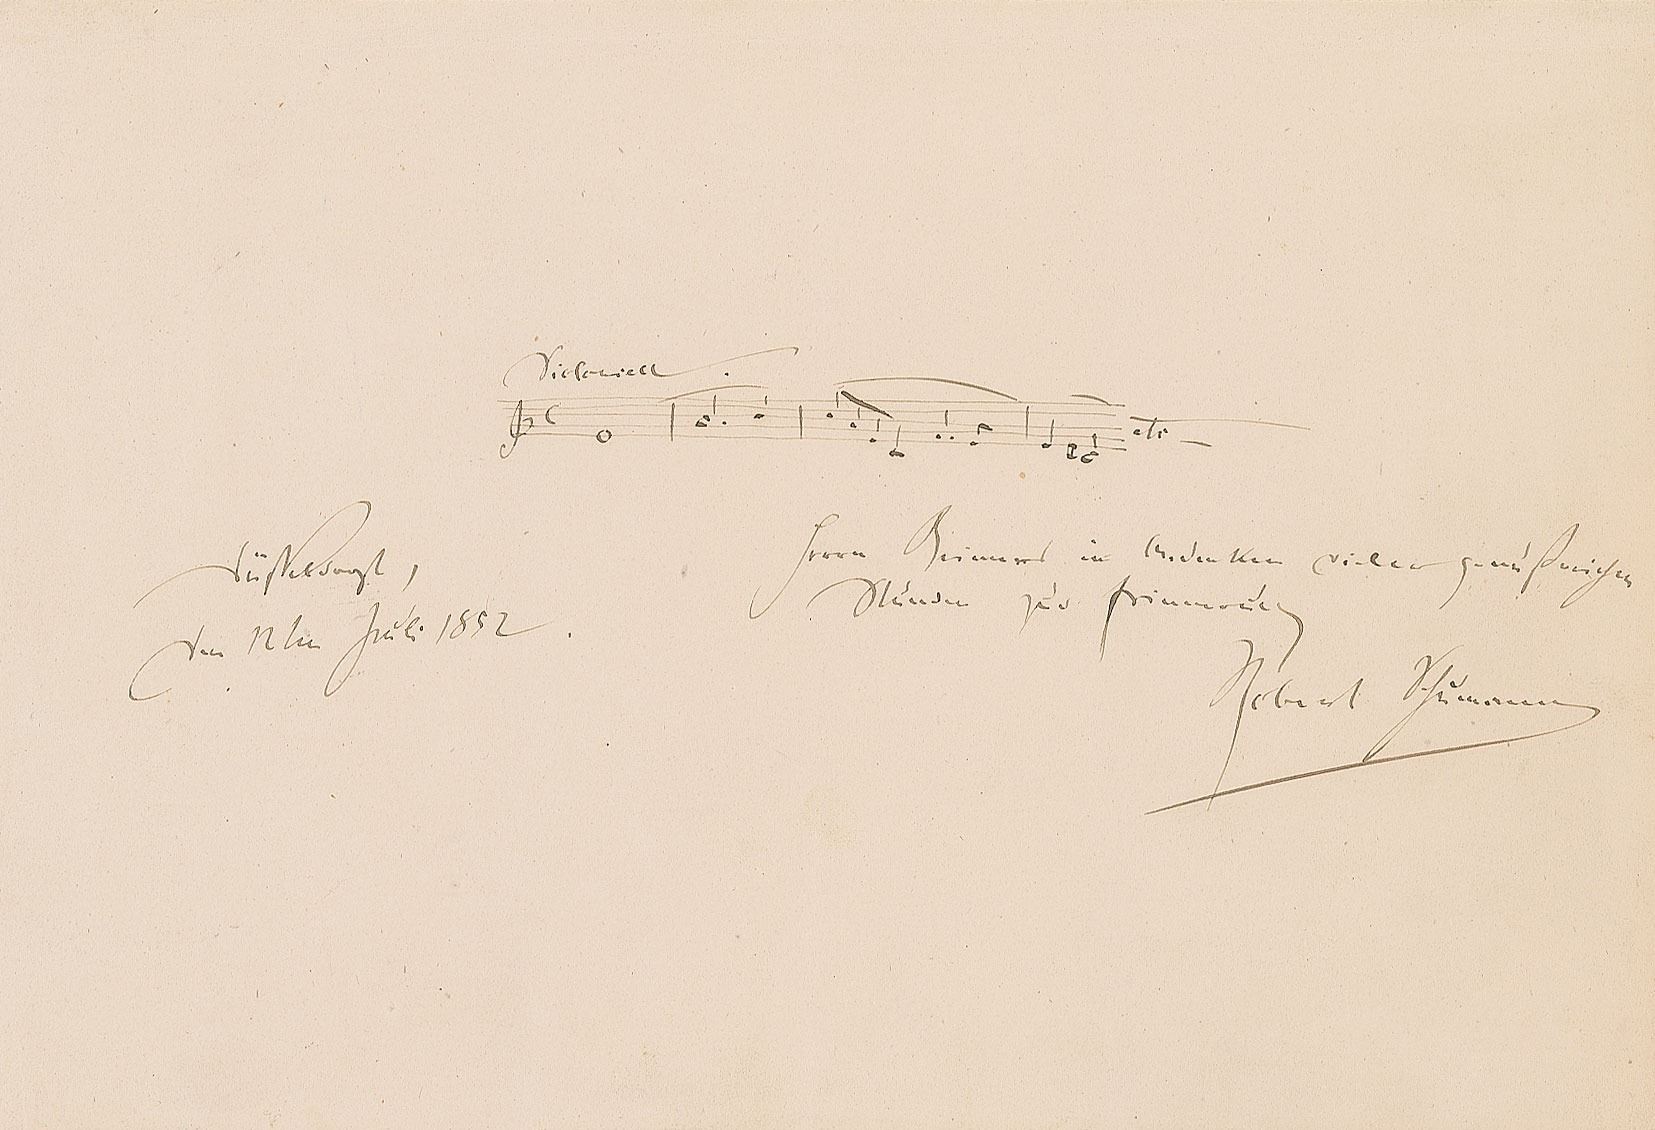 Violoncell.
etc
Düsseldorf,
den 12ten Juli 1852.
Herrn Reimers in Andenken vieler genußreichen
Stunden zur Erinnerung
Robert Schumann